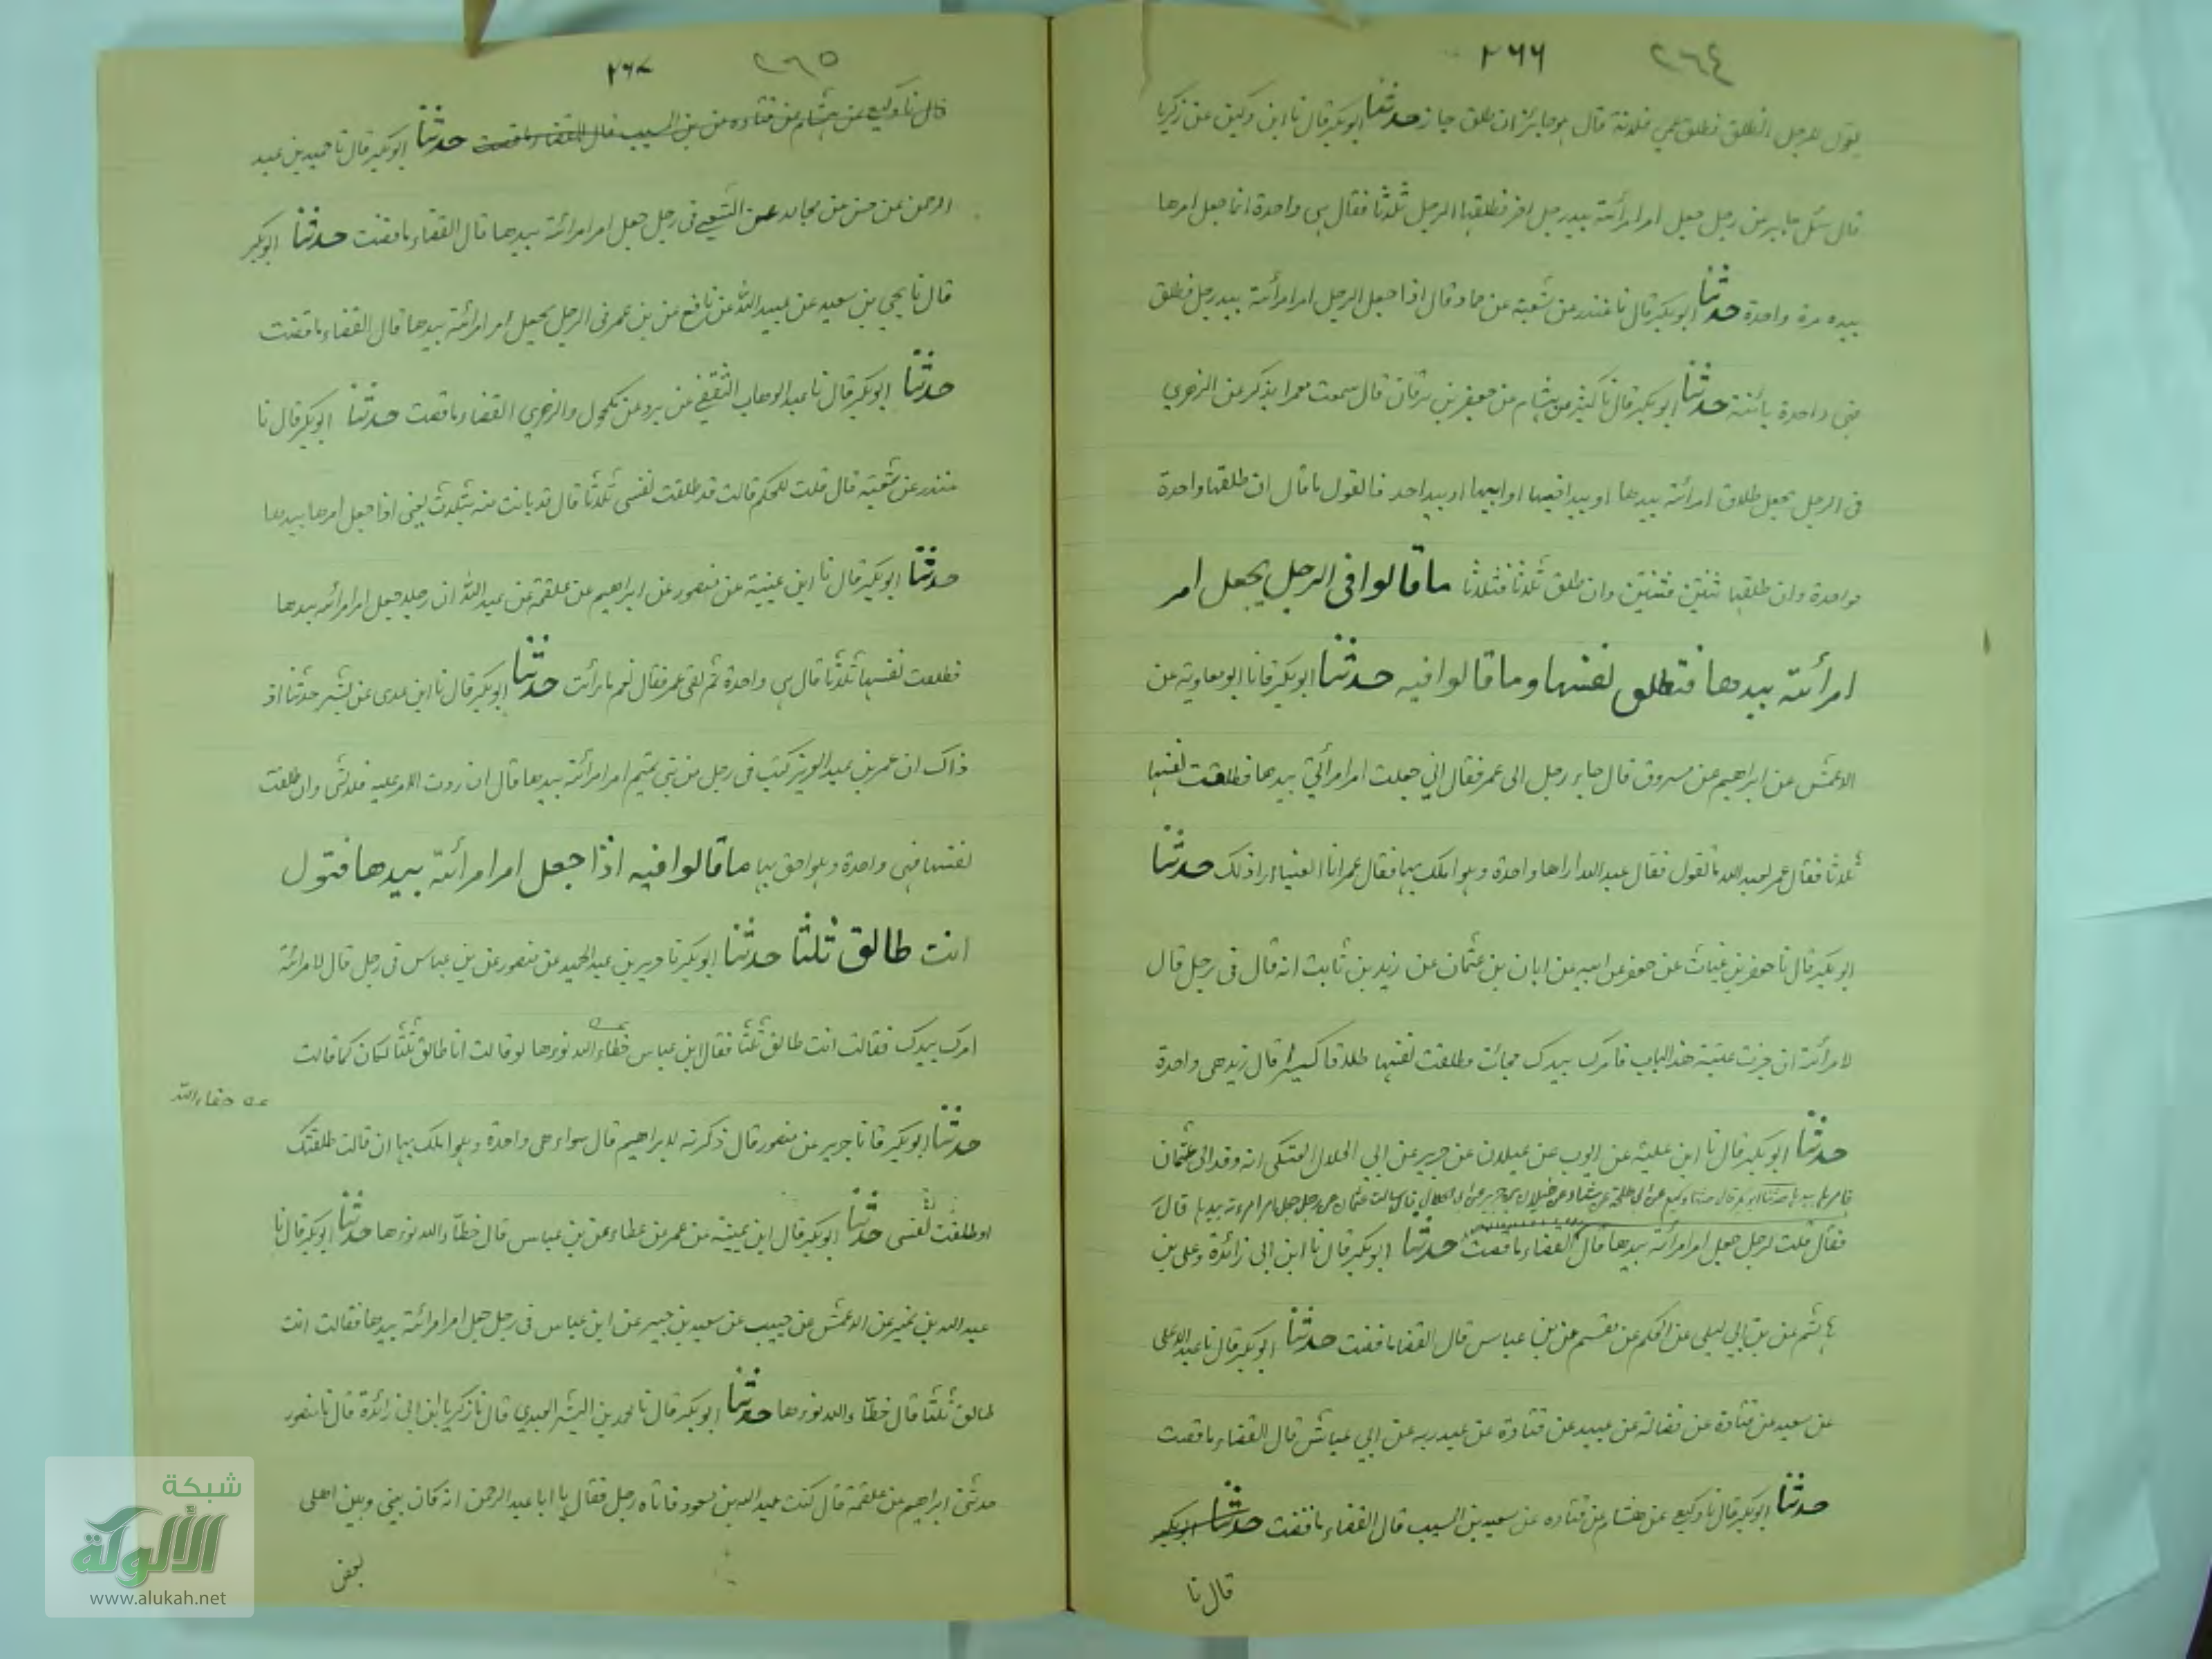 ٢٦٤ ٢٦٦
يقول للرجل انطلق فطلق عني فلانة قال هو جائز ان طلق جاز حدثنا ابوبكر قال نا ابن دكين عن زكريا
قال سئل جابر عن رجل جعل امر امرأته بيد رجل اخر فطلقها الرجل ثلثا فقال هي واحدة انما جعل امرها
بيده مرة واحدة حدثنا ابوبكر قال نا غندر عن شعبة عن حماد قال اذا جعل الرجل امر امرأته بيد رجل فطلق
فهي واحدة بائنة حدثنا ابوبكر قال نا كثير بن هشام عن جعفر بن برقان قال سمعت معمرا يذكر عن الزهري
في الرجل يجعل طلاق امرأته بيدها او بيد اخيها او ابيها او بيد احد فالقول ما قال ان طلقها واحدة
فواحدة وان طلقها ثنتين فثنتين وان طلق ثلاثا فثلاثا ما قالوا في الرجل يجعل امر
امرأته بيدها فتطلق نفسها وما قالوا فيه حدثنا ابوبكر قا نا ابو معاوية عن
الاعمش عن ابراهيم عن مسروق قال جاء رجل الى عمر فقال اني جعلت امر امرأتي بيدها فطلقت نفسها
ثلاثا فقال عمر لعبد الله ما تقول فقال عبد الله اراها واحدة وهو املك بها فقال عمر انا ايضا ارا ذلك حدثنا
ابوبكر قال نا حفص بن غياث عن جعفر عن ابيه عن ابان بن عثمان عن زيد بن ثابت انه قال في رجل قال
لامرأته ان جزت عتبة هذا الباب فامرك بيدك فجائت وطلقت نفسها طلاقا كثيرا قال زيد هي واحدة
حدثنا ابوبكر قال نا ابن علية عن ايوب عن غيلان عن جرير عن ابي الحلال العتكي انه وفد الى عثمان
فامرها بيدها حدثنا ابوبكر قال حدثنا وكيع عن ابي طلحة عن شداد عن غيلان بن جرير عن ابي الحلال قال سالت عثمان عن رجل جعل امر امرءته بيدها قال
فقال قلت لرجل جعل امر امرأته بيدها قال القضاء ما قضت حدثنا ابوبكر قال نا ابن ابي زائدة وعلي بن
هاشم عن بن ابي ليلى عن الحكم عن مقسم عن بن عباس قال القضا ما قضت حدثنا ابوبكر قال نا عبد الاعلى
عن سعيد عن قتادة عن فضالة عن عبيد عن قتادة عن عبد ربه عن ابي عياش قال القضاء ما قضت
حدثنا ابوبكر قال نا وكيع عن هشام عن قتاده عن سعيد بن المسيب قال القضاء ما قضت حدثنا ابوبكر
قال نا
٢٦٥ ٢٦٧
قال نا وكيع عن هشام عن قتاده عن بن المسيب قال القضاء ما قضت حدثنا ابوبكر قال نا حميد بن عبد
الرحمن عن حسن عن مجالد عن الشعبي في رجل جعل امر امرأته بيدها قال القضاء ما قضت حدثنا ابوبكر
قال نا يحي بن سعيد عن عبيد الله عن نافع عن بن عمر في الرجل يجعل امر امرأته بيدها قال القضاء ما قضت
حدثنا ابوبكر قال نا عبد الوهاب الثقفي عن برد عن مكحول والزهري القضاء ما قضت حدثنا ابوبكر قال نا
غندر عن شعبة قال قلت للحكم قالت قد طلقت نفسي ثلاثا قال قد بانت منه بثلاث يعني اذا جعل امرها بيدها
حدثنا ابوبكر قال نا ابن عيينة عن منصور عن ابراهيم عن علقمة عن عبد الله ان رجلا جعل امر امرأته بيدها
فطلقت نفسها ثلاثا قال هي واحدة ثم لقي عمر فقال نعم ما رأيت حدثنا ابوبكر قال نا ابن عدى عن بشير حدثنا اذ
ذاك ان عمر بن عبد العزيز كتب في رجل من بني تميم امر امرأته بيدها قال ان ردت الامر عليه فلا شى وان طلقت
نفسها فهي واحدة وهو احق بها ما قالوا فيه اذا جعل امر امرأته بيدها فتقول
انت طالق ثلثا حدثنا ابوبكر نا جرير بن عبد الحميد عن منصور عن بن عباس في رجل قال لامرأته
امرك بيدك فقالت انت طالق ثلثا فقال ابن عباس خطاء الله نوءها لو قالت انا طالق ثلثا لكان كما قالت
عه خطاء الله
حدثنا ابوبكر قا نا جرير عن منصور قال ذكرته لابراهيم قال سواء هى واحدة وهو املك بها ان قالت طلقتك
او طلقت نفسى حدثنا ابوبكر قال ابن عيينة عن عمر عن عطاء عن بن عباس قال خطأ الله نوءها حدثنا ابوبكر قال نا
عبد الله بن نمير عن الاعمش عن حبيب عن سعيد بن جبير عن ابن عباس في رجل جعل امر امرأته بيدها فقالت انت
طالق ثلثا قال خطأ الله نوءها حدثنا ابوبكر قال نا محمد بن البشر العبدي قال نا زكريا ابن ابي زائدة قال نا منصور
حدثني ابراهيم عن علقمة قال كنت عبد الله بن مسعود فاتاه رجل فقال يا ابا عبد الرحمن انه كان بيني وبين اهلى
بعض
شبكة
الألوكة
www.alukah.net